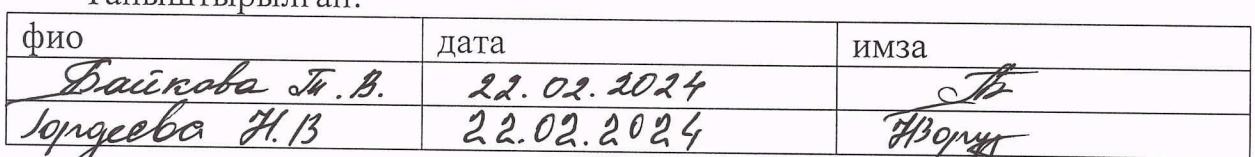 Таныштырылган:
фио дата имза
Байкова Т.В. 22.02.2024
Гордеева Н.В 22.02.2024